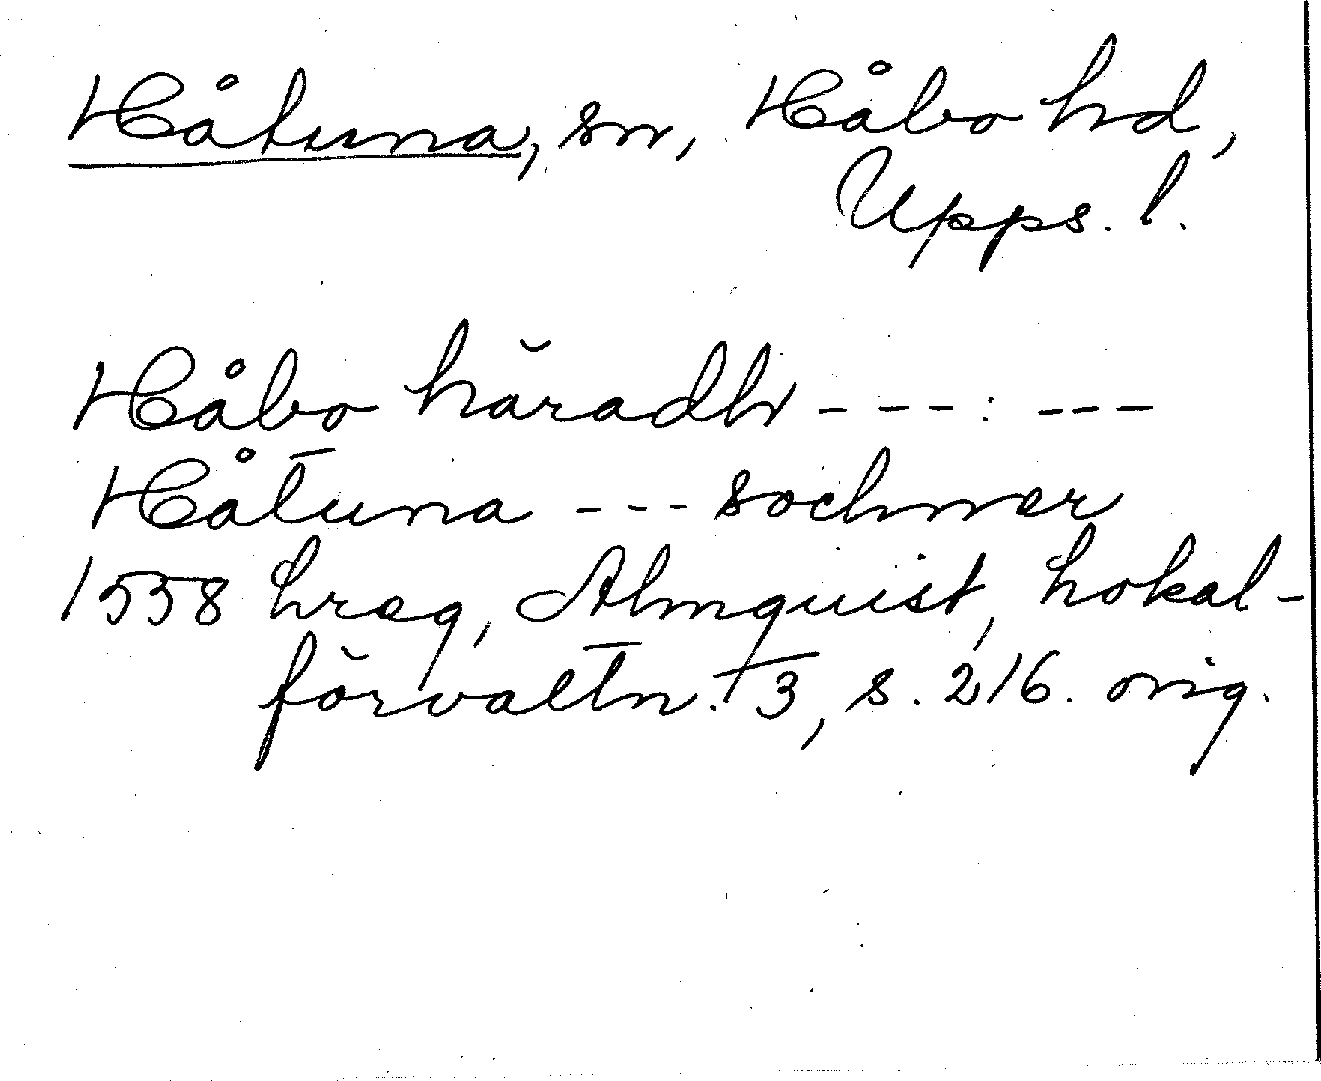 Håtuna, sn, Håbo hd,
Upps. l.
Håbo häradh - - - - : - - -
Håtuna - - - sochner
1558 hreg, Almquist, Lokal-
förvaltn. I3, s. 216. orig.